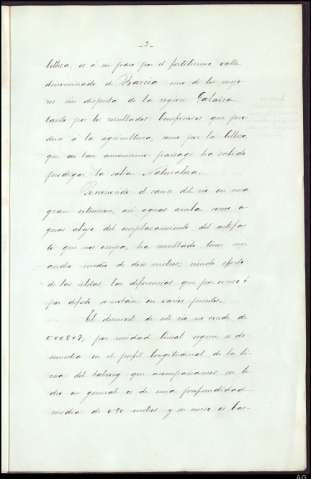 -2-
belleza, es á su paso por el fertilísimo valle
denominado de Ibarcia uno de los mejo-
res sin disputa de la region
tanto por los resultados beneficiosos que pro-
duce á la agricultura, como por la belleza
que en tan amenísimo paisaje ha sabido
prodigar la sabia Naturaleza.
Recorriendo el cauce del rio en una
gran extension, asi aguas arriba como a-
guas abajo del emplazamiento del artefac-
to que nos ocupa, ha resultado tener un
ancho medio de diez metros, siendo
de las las diferencias que por exceso ó
por defecto resultan en varios puntos.
El desnivel de este rio es de
por unidad lineal segun se de-
muestra en el perfil longitudinal de la lí-
nea del talweg que acompañamos
en general es de una profundidad
media de 0'90 metros y su cauce es bas-
AG